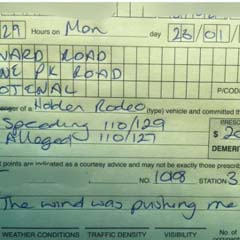 29 Hours on Mon day 26/01/
WARD ROAD
NE PK ROAD
OTENAL
P/COD
enger of a Holden Rodeo (type) vehicle and committed t
Speeding 110/129
Alleged 110/127
PRESCR
$ 2
DEMERI
t points are indicated as a courtesy advice and may not be exactly those prescrib
NO. 1098 STATION 3
The wind was pushing me
WEATHER CONDITIONS TRAFFIC VISIBILITY No. o